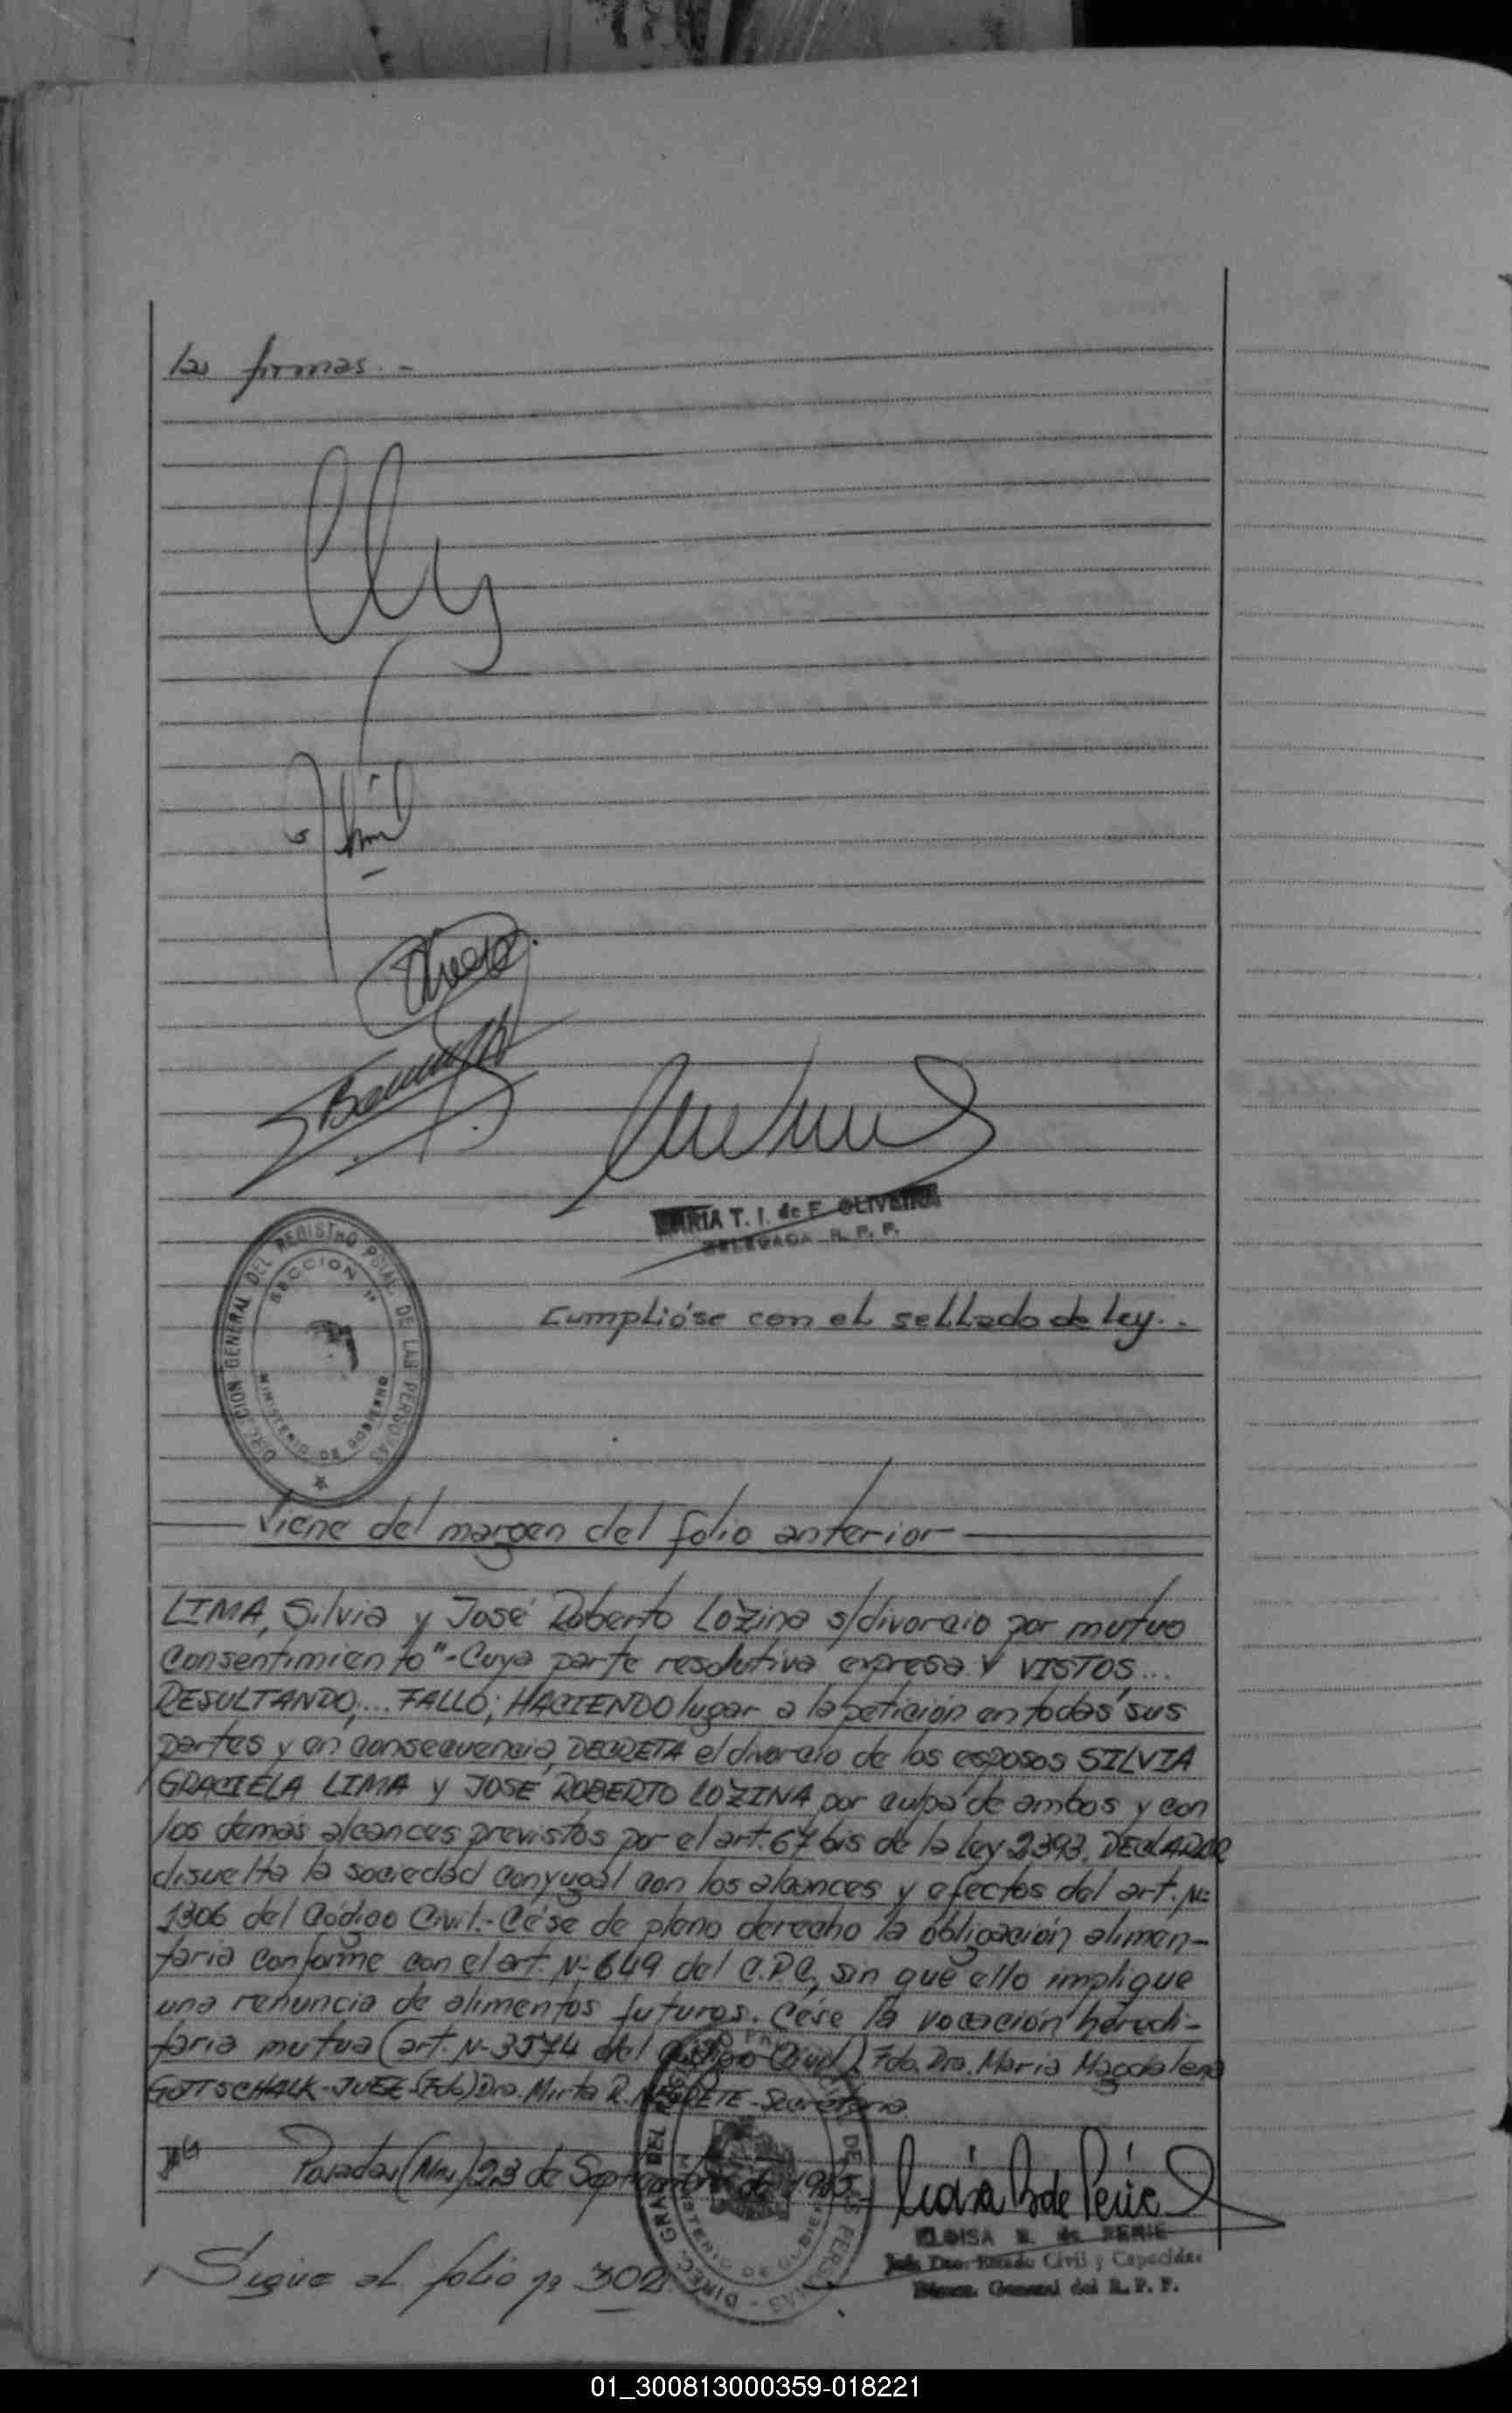 las firmas.-
MARIA T. I. de F. OLIVEIRA
DELEGADA R. P. P.
DIRECCION GENERAL DEL REGISTRO PCIAL. DE LAS PERSONAS
SECCION 1ª
MINISTERIO DE GOBIERNO
Cumplióse con el sellado de ley..
Viene del margen del folio anterior
LIMA, Silvia y José Roberto Lozina s/divorcio por mutuo
Consentimiento"-Cuya parte resolutiva expresa Y VISTOS,...
RESULTANDO,... FALLO; HACIENDO lugar a la petición en todas sus
partes y en consecuencia, DECRETA el divorcio de los esposos SILVIA
GRACIELA LIMA y JOSÉ ROBERTO LOZINA por culpa de ambos y con
los demás alcances previstos por el art. 67 bis de la Ley 2393. DECLARAR
disuelta la sociedad conyugal con los alcances y efectos del art. Nº
1306 del Código Civil.- Cése de pleno derecho la obligación alimen-
taria conforme con el art. Nº 649 del C.P.C, sin que ello implique
una renuncia de alimentos futuros. Cése la vocación heredi-
taria mutua (art. Nº 3574 del Código Civil) Fdo. Dra. Maria Magdalena
GOTTSCHALK-JUEZ-(Fdo) Dra. Mirta R. NEGRETE-Secretaria.
Posadas (Mnes) 23 de Septiembre de 1985.-
ELOISA B. de PERIE
Jefe Dto. Estado Civil y Capacidad
Direcc. General del R. P. P.
Sigue al folio nº 302
01_300813000359-018221